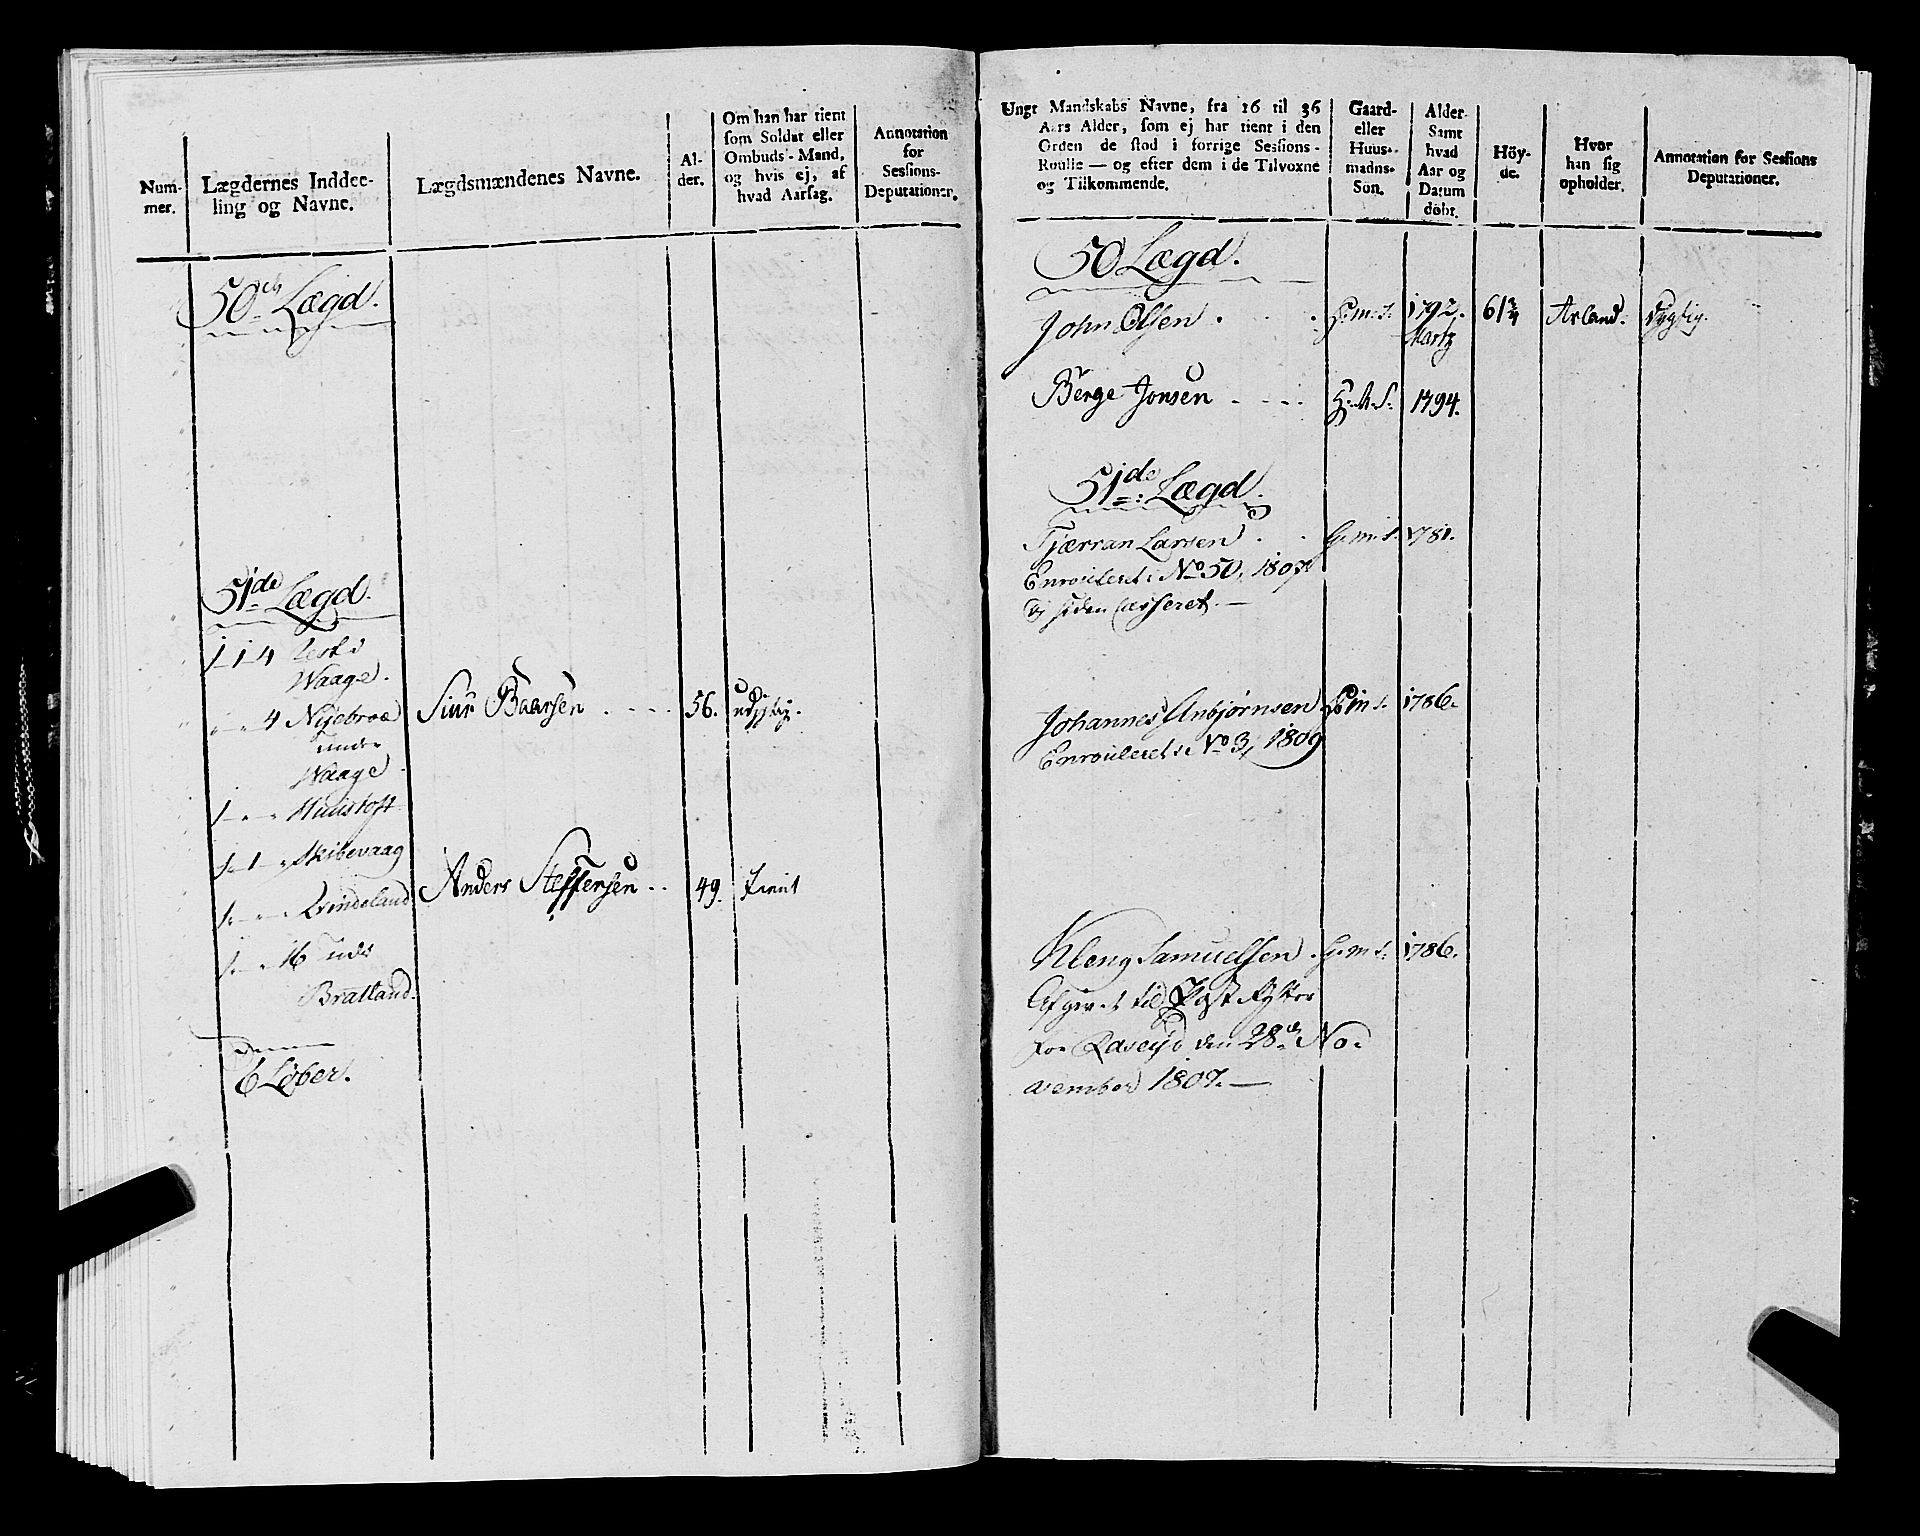 Num-
mer.
Lægdernes Inddee-
ling og Navne.
Lægdsmændenes Navne.
Al-
der.
Om han har tient
som Soldat eller
Ombuds-Mand,
og hvis ej, af
hvad Aarsag.
Annotation
for
Sessions-
Deputationer.
50de Lægd.
51de Lægd.
Waage.
4 Nyebroe
under
Waage
Siur Baarsen 56. udygtig.
Skibevaag
Anders Steffensen 49. tient
Qvindeland
16 uds
Bratland.
6 Løber.
Ungt Mandskabs Navne, fra 16 til 36
Aars Alder, som ej har tient i den
Orden de stod i forrige Sessions-
Roulle — og efter dem i de Tilvoxne
og Tilkommende.
Gaard-
eller
Huus-
madns-
Søn.
Alder
Samt
hvad
Aar og
Datum
døbt.
Höy-
de.
Hvor
han sig
opholder.
Annotation for Sessions
Deputationer.
50 Lægd.
John Olsen H:m:S. 1792. 61¾ Arland. dygtig.
Martz
Berge Jonsen G:M:S. 1794.
51de Lægd.
Tjærran Larsen G:m:S. 1781.
Enroulleret i No 50, 1807
siden Casseret. —
Johannes Anbjørnsen H:m:S. 1786.
Enroulleret i No 3, 1809
Kleng Samuelsen G:m:S: 1786.
Afgivet til Post
for den 28de No-
vember 1807. —